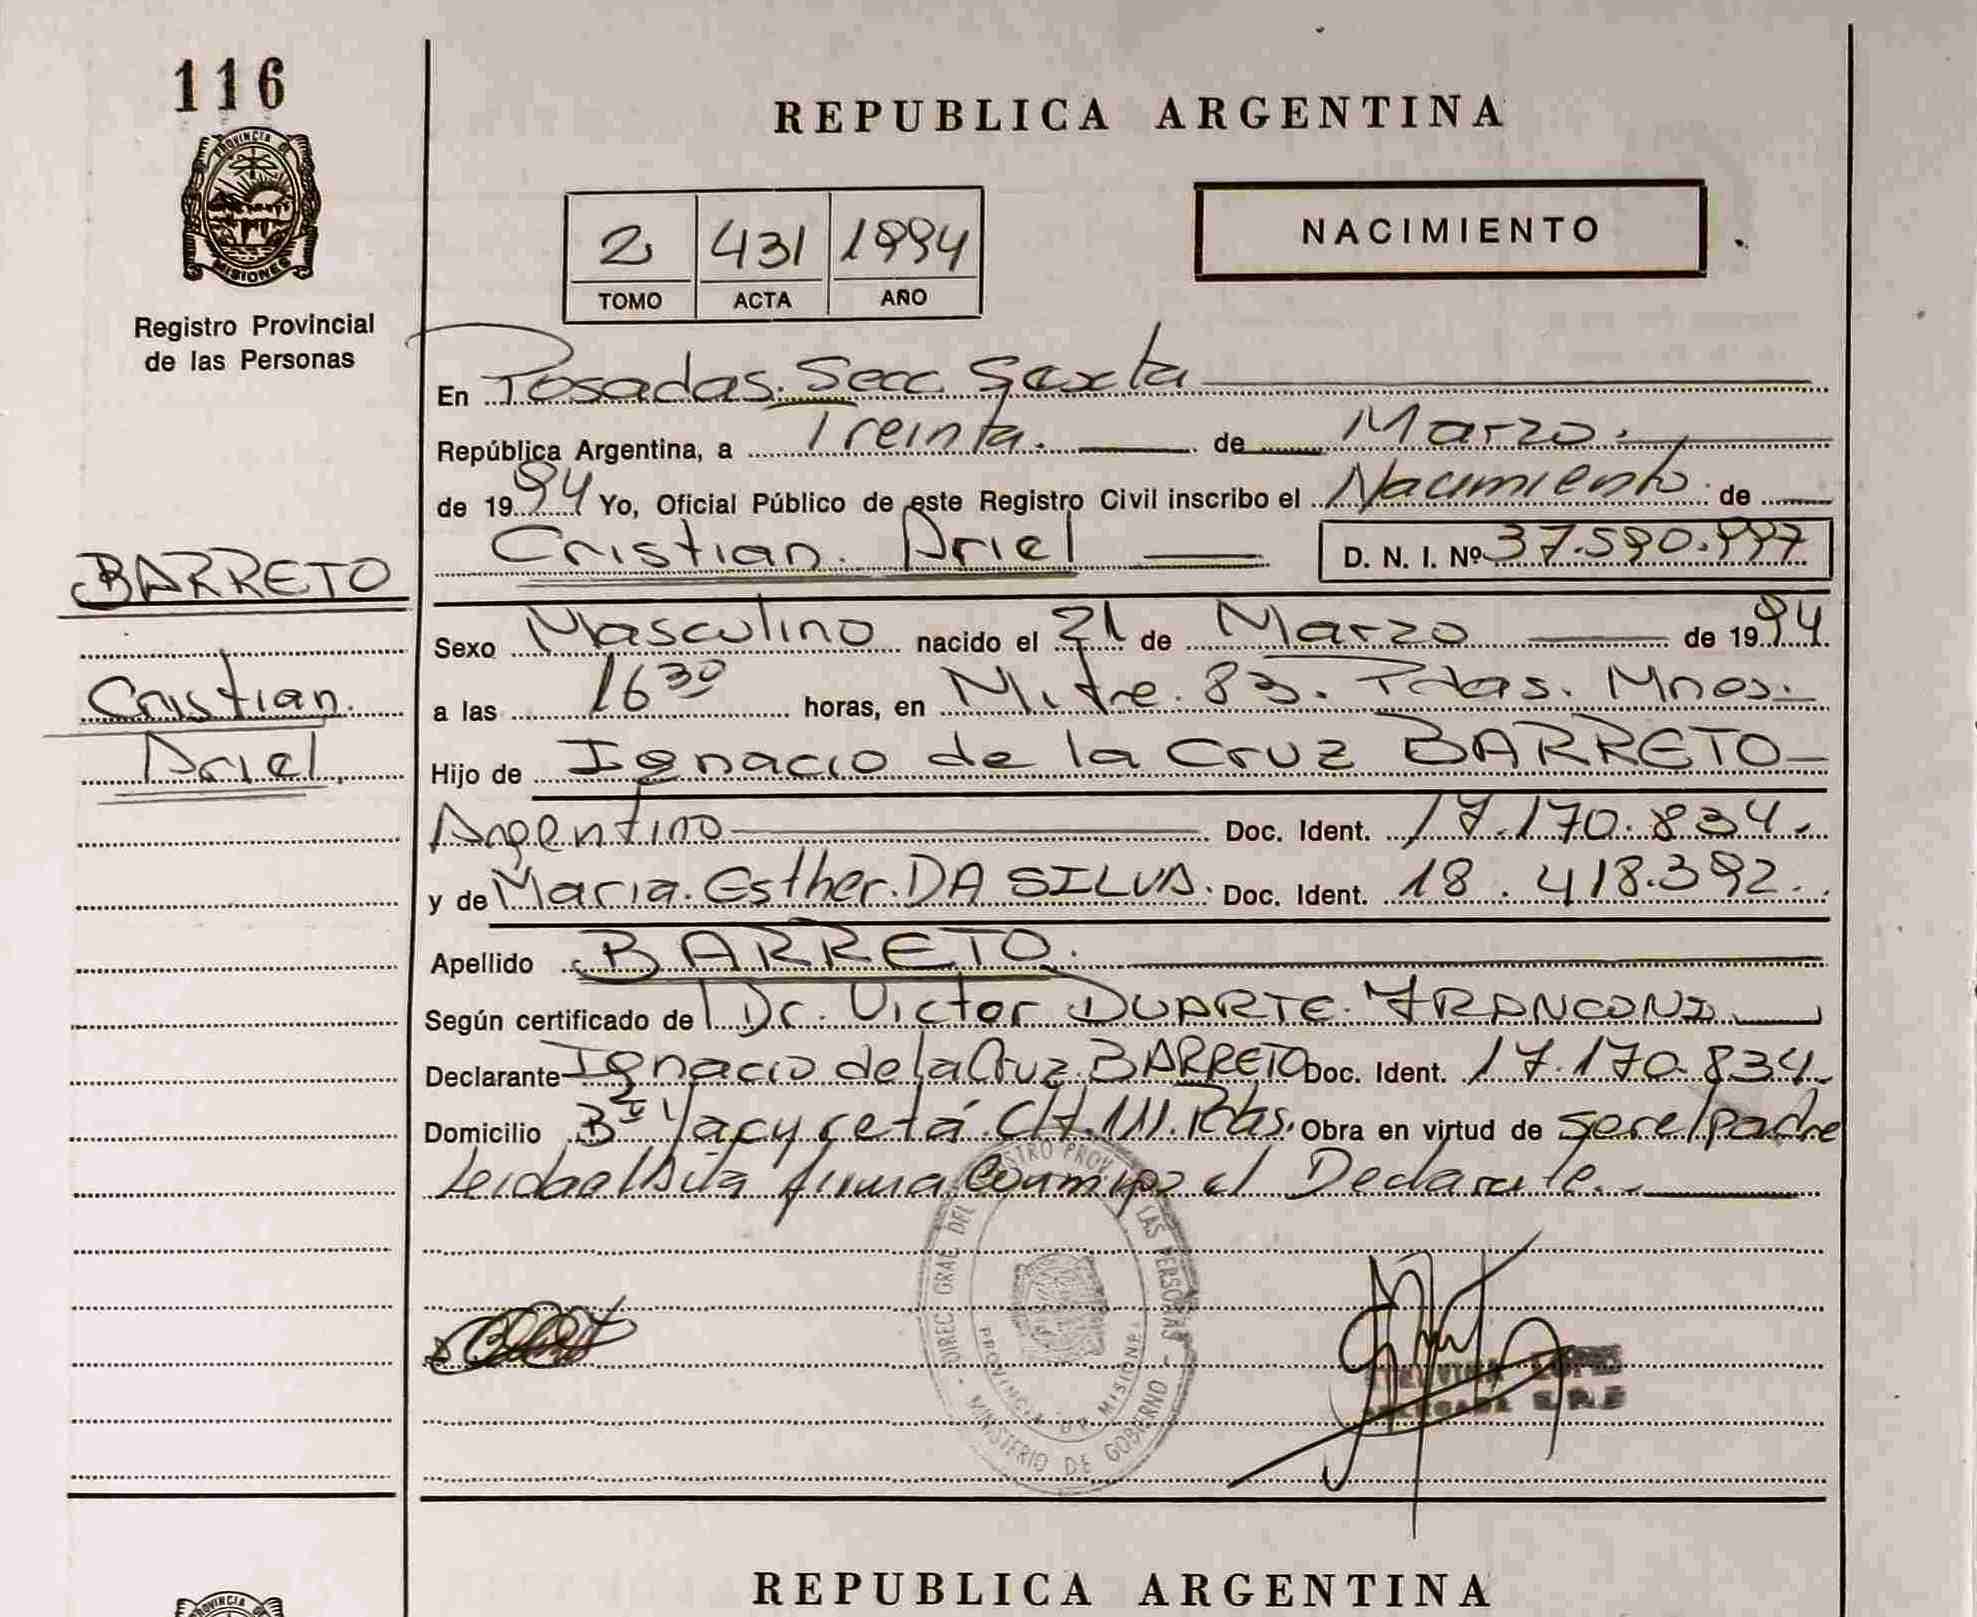 116
PROVINCIA DE
MISIONES
Registro Provincial
de las Personas
REPUBLICA ARGENTINA
2 431 1994
TOMO ACTA AÑO
NACIMIENTO
En Posadas. Secc. Sexta
República Argentina, a Treinta. de Marzo.
de 1994 Yo, Oficial Público de este Registro Civil inscribo el Nacimiento de
Cristian. Ariel D. N. I. Nº 37.590.997
BARRETO
Cristian.
Ariel.
Sexo Masculino nacido el 21 de Marzo de 1994.
a las 16 30 horas, en Mitre. 83. Pdas. Mnes.
Hijo de Ignacio de la Cruz BARRETO
Argentino Doc. Ident. 17.170.834.
y de Maria. Esther. DA SILVA. Doc. Ident. 18.418.392.
Apellido BARRETO.
Según certificado del Dr. Victor DUARTE. FRANCONI
Declarante Ignacio de la Cruz. BARRETO Doc. Ident. 17.170.834.
Domicilio Bº Yacyretá. CH. 111. Pdas. Obra en virtud de ser el padre
Leida el Acta firma conmigo el Declarante.
DIREC. GRAL. DEL REGISTRO PROV. DE LAS PERSONAS
PROVINCIA DE MISIONES
MINISTERIO DE GOBERNO
REPUBLICA ARGENTINA
PROVINCIA DE